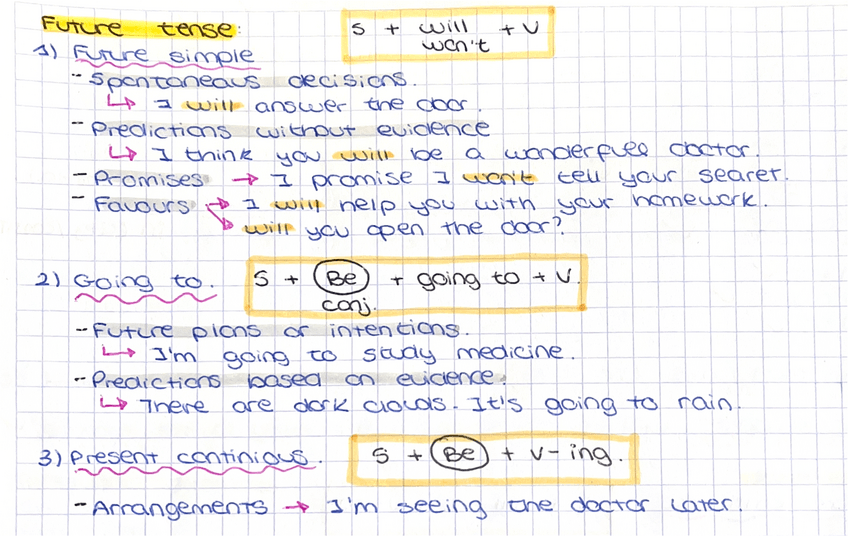 Future tense: S + will + V
won't
1) Future simple
- Spontaneous decisions.
↳ I will answer the door.
- Predictions without evidence
↳ I think you will be a wonderfull doctor.
- Promises → I promise I won't tell your searet.
- Favours → I will help you with your homework.
↘ will you open the door?
2) Going to. S + Be + going to + V.
conj.
- Future plans or intentions.
↳ I'm going to study medicine.
- Predictions based on evidence.
↳ There are dark clouds. It's going to rain.
3) Present continious. S + Be + V-ing.
- Arrangements → I'm seeing the doctor later.